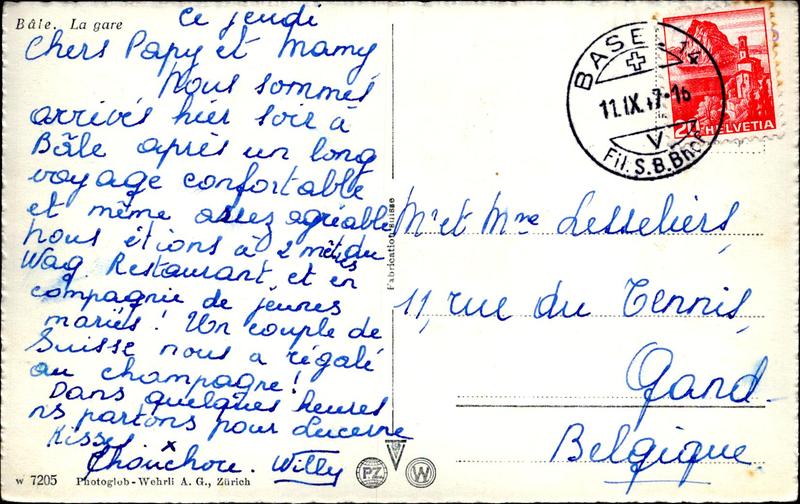 Bâle. La gare
Ce jeudi
Chers Papy et Mamy
Nous sommes
arrivés hier soir à
Bâle après un long
voyage confortable
et même assez agréable
nous étions à 2 mètres du
Wag. Restaurant et en
compagnie de jeunes
mariés! Un couple de
Suisse nous a régalé
au champagne!
Dans quelques heures
ns partons pour Lucerne
Kisses
Chouchou. Willy
w 7205 Photoglob-Wehrli A. G., Zürich
Fabrication Suisse
PZ W
BASEL 14
11.IX.47-16
V
Fil. S.B.Bhof
20 HELVETIA
Mr et Mme Lesseliers,
11, rue du Tennis,
Gand.
Belgique